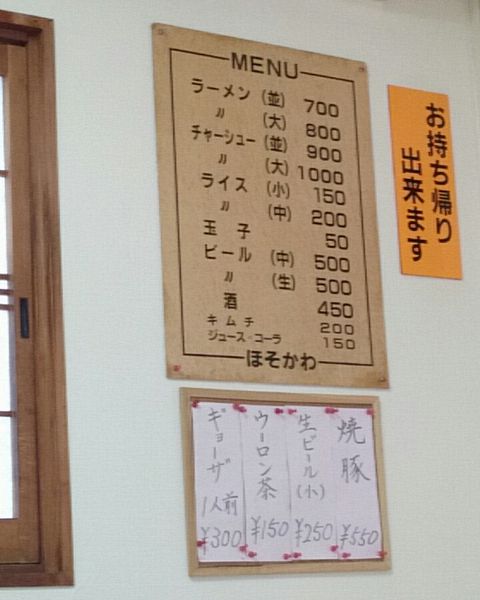 MENU
ラーメン (並) 700
〃 (大) 800
チャーシュー (並) 900
〃 (大) 1000
ライス (小) 150
〃 (中) 200
玉子 50
ビール (中) 500
〃 (生) 500
酒 450
キムチ 200
ジュース・コーラ 150
ほそかわ
お持ち帰り
出来ます
焼豚 ¥550
生ビール(小) ¥250
ウーロン茶 ¥150
ギョーザ 1人前 ¥300